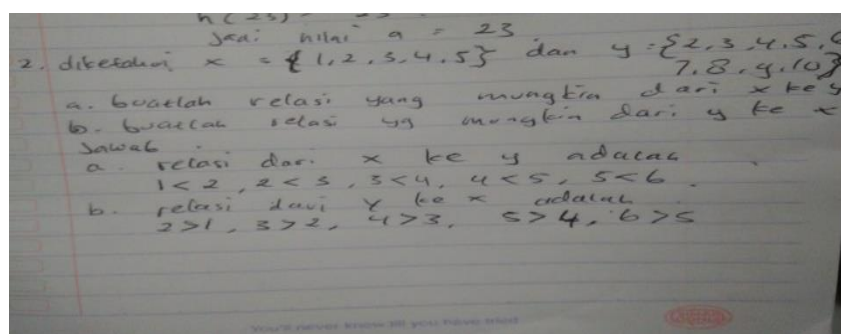 h(23) = 23
Jadi nilai a = 23
2. diketahui x = {1,2,3,4,5} dan y = {2,3,4,5,6
7,8,9,10}
a. buatlah relasi yang mungkin dari x ke y
b. buatlah relasi yg mungkin dari y ke x
Jawab
a. relasi dari x ke y adalah
1<2, 2<3, 3<4, 4<5, 5<6.
b. relasi dari y ke x adalah
2>1, 3>2, 4>3, 5>4, 6>5
You'll never know till you have tried